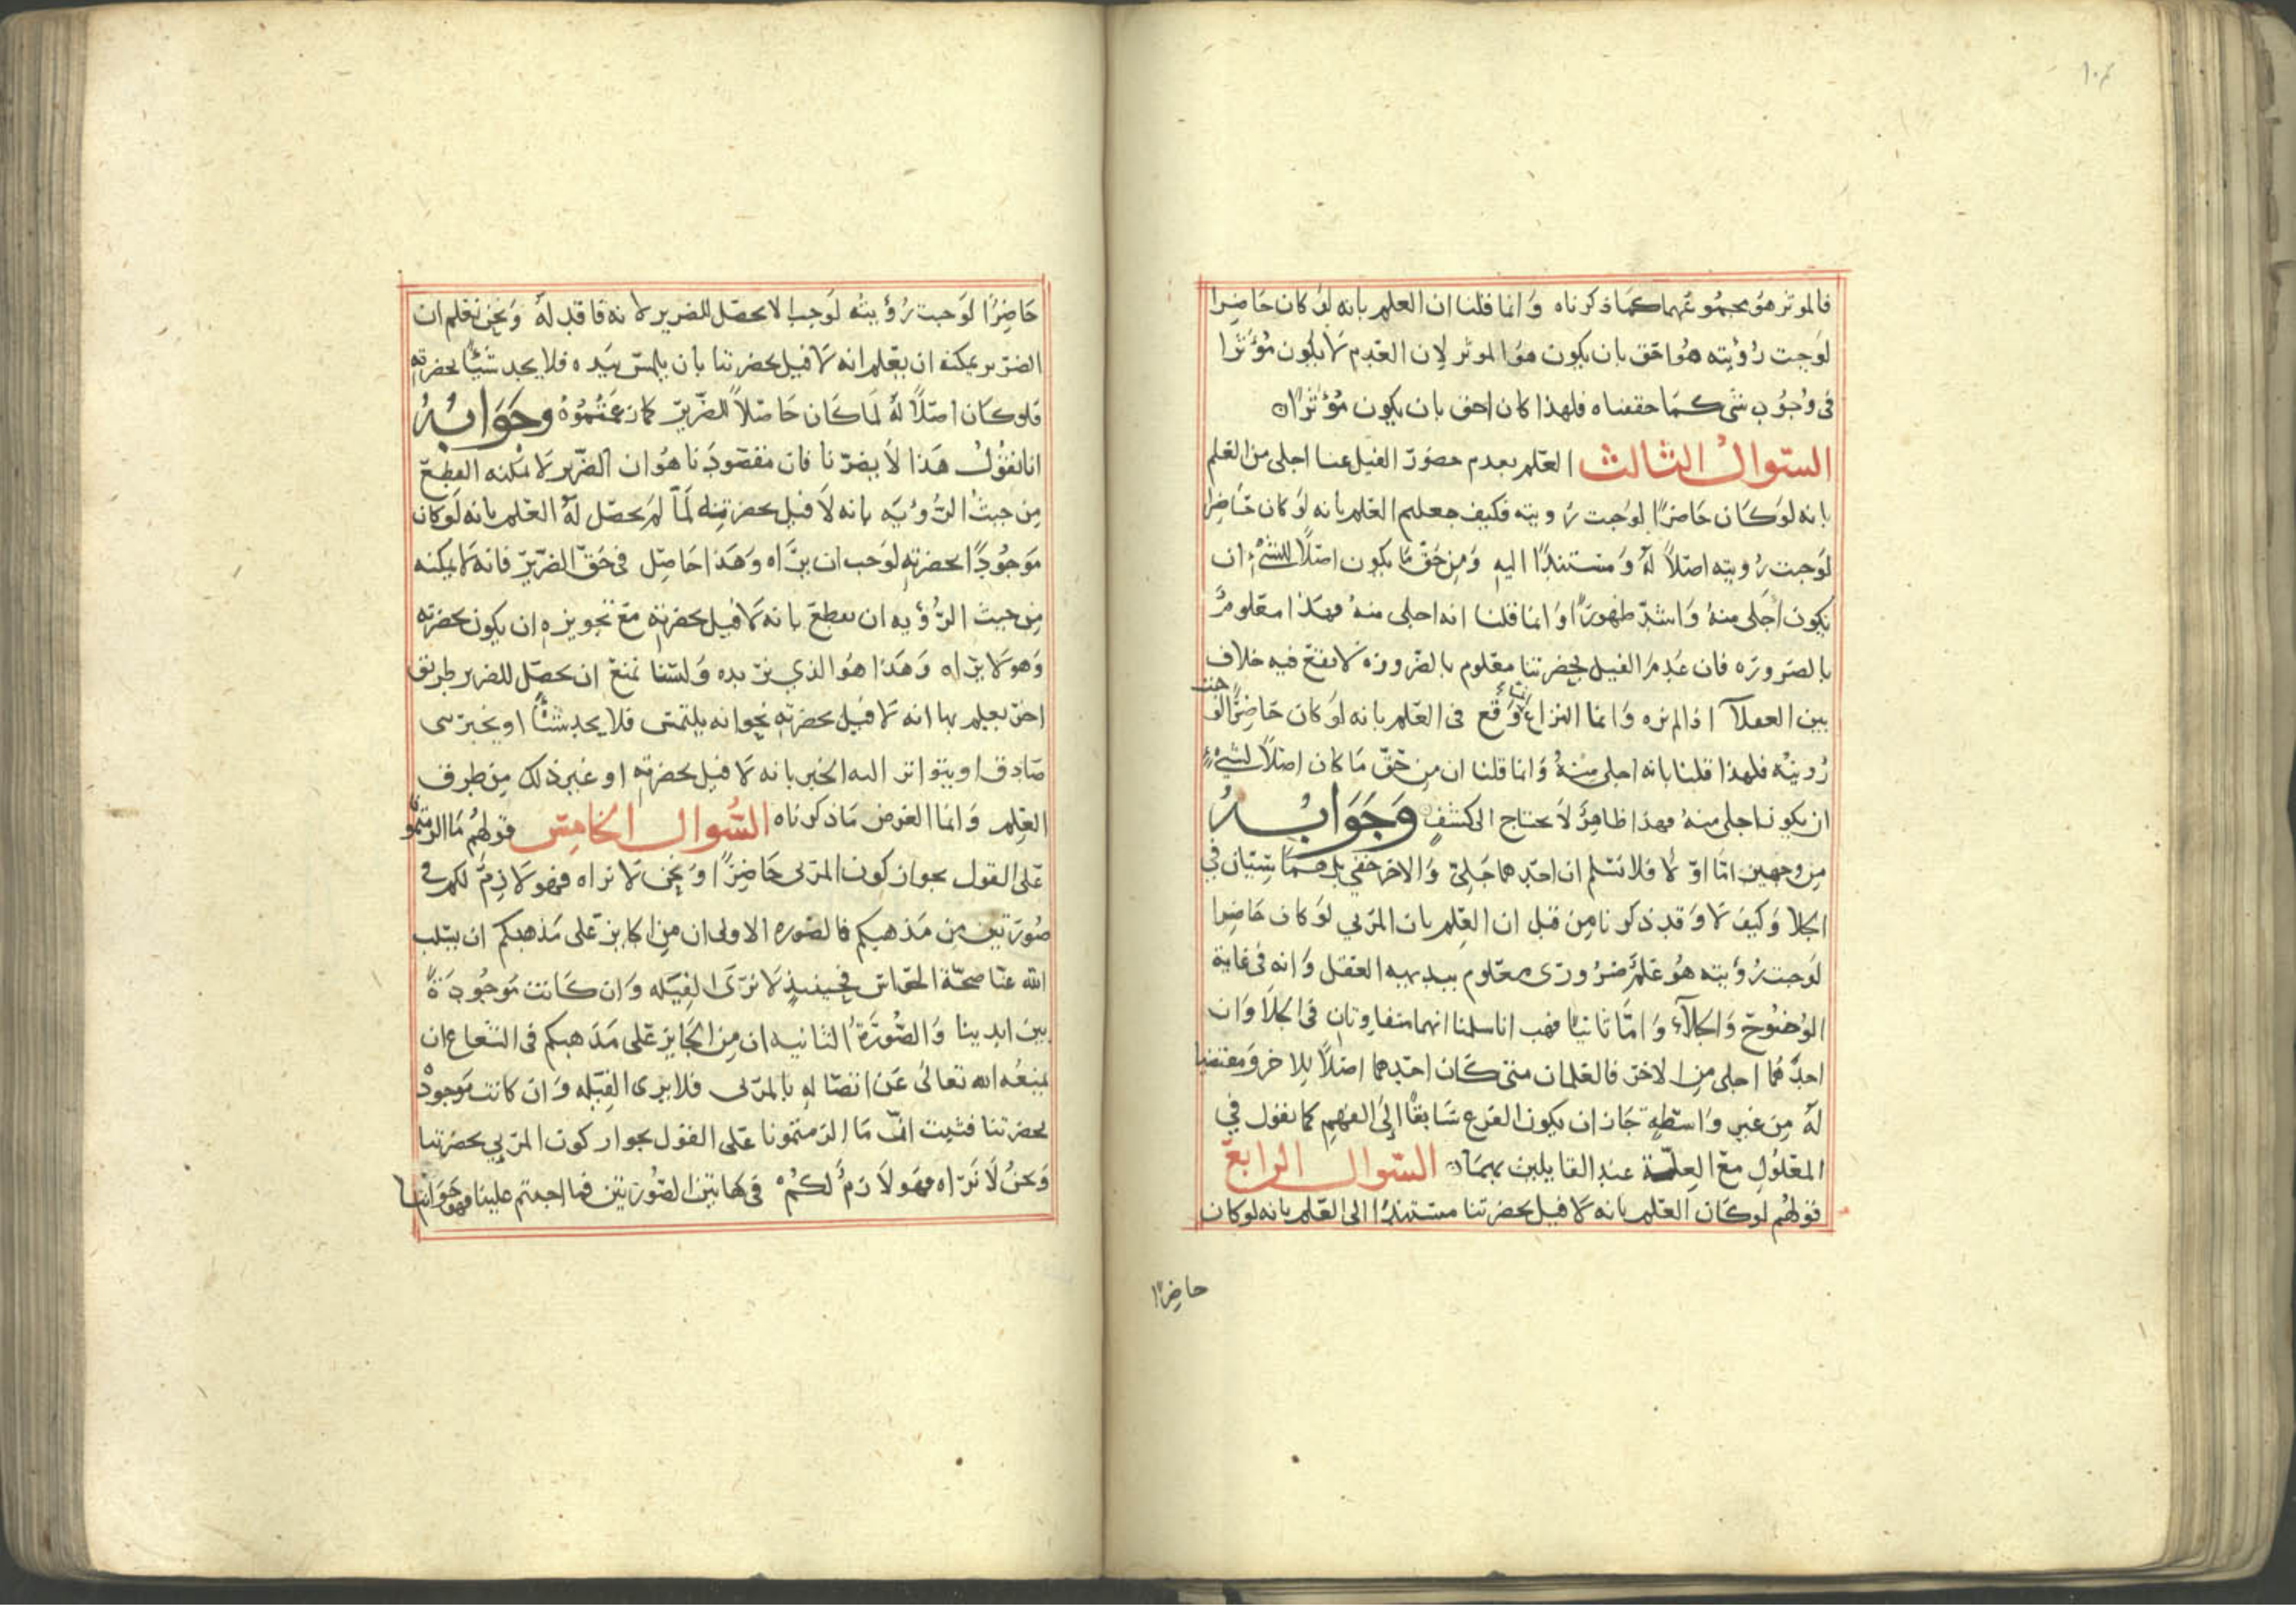 ١٠٤
فالموثر هو مجموعهما كما ذكرناه وانما قلنا ان العلم بانه لو كان حاضرا
لوجبت رؤيته هو احق بان يكون هو الموثر لان العدم لا يكون مؤثرا
فى وجوب شى كما حققناه فلهذا كان احق بان يكون مؤثرا
السّوال الثالث العلم بعدم حضور الفيل عندنا اجلى من العلم
بانه لو كان حاضرًا لوجبت رويته فكيف جعلهم العلم بانه لو كان حاضرا
لوجبت رويته اصلاً له ومستندًا اليه ومن حق ما يكون اصلاً للشىء ان
يكون اجلى منه واشد ظهورًا وانما قلنا انه اجلى منه فهذا معلوم
بالضروره فان عدم الفيل بحضرتنا معلوم بالضروره لا يقع فيه خلاف
بين العقلآ اذا لم نره وانما النزاع وقع فى العلم بانه لو كان حاضرًا لوجبت
رويته فلهذا قلنا بانه اجلى منه وانما قلنا ان من حق ما كان اصلاً لشىء
ان يكون اجلى منه فهذا ظاهر لا يحتاج الى كشف وجوابه
من وجهين اما اولا فلا نسلم ان احدهما جلىّ والاخر خفي بل هما سيّان في
الجلا وكيف لا وقد ذكرنا من قبل ان العلم بان المرئي لو كان حاضرا
لوجبت رؤيته هو علم ضرورى معلوم ببديهه العقل وانه فى غاية
الوضوح والجلآء واما ثانيًا فهب انا سلمنا انهما متفاوتان فى الجلا وان
احدهما اجلى من الاخر فالعلمان متى كان احدهما اصلاً للاخر ومقتضيا
له من غير واسطة جاز ان يكون الفرع سابقًا الى الفهم كما نقول في
المعلول مع العلة عند القايلين بهما السّوال الرابع
قولهم لو كان العلم بانه لا فيل بحضرتنا مستندًا الى العلم بانه لو كان
حاضرًا
حاضرًا لوجبت رؤيته لوجب لا يحصل للضرير لانه فاقد له ونحن نعلم ان
الضرير يمكنه ان يعلم انه لا فيل بحضرتنا بان يلمس بيده فلا يجد شيئًا بحضرته
فلو كان اصلاً له لما كان حاصلاً للضرير كما زعمتموه وجوابه
انا نقول هذا لا يضرنا فان مقصودنا هو ان الضرير لا يمكنه القطع
من حيث الرؤيه بانه لا فيل بحضرته لما لم يحصل له العلم بانه لو كان
موجودًا بحضرته لوجب ان يراه وهذا حاصل فى حق الضرير فانه لا يمكنه
من حيث الرؤيه ان يقطع بانه لا فيل بحضرته مع تجويزه ان يكون بحضرته
وهو لا يراه وهذا هو الذي نريده ولسنا نمنع ان يحصل للضرير طريق
اخر يعلم بها انه لا فيل بحضرته نحو انه يلتمس فلا يجد شيئًا او يخبر نبى
صادق او يتواتر اليه الخبر بانه لا فيل بحضرته او غير ذلك من طرق
العلم وانما الغرض ما ذكرناه السّوال الخامس قولهم ما الزمتمونا
على القول بجواز كون المرئى حاضرًا ونحن لا نراه فهو لازم لكم فى
صورتين من مذهبكم فالصوره الاولى ان من الجايز على مذهبكم ان يسلب
الله عنا صحة الحواس فحينيذ لا نرى الفيله وان كانت موجودة
بين ايدينا والصورة الثانيه ان من الجايز على مذهبكم فى الشعاع ان
يمنعه الله تعالى عن اتصاله بالمرئى فلا يرى الفيله وان كانت موجودة
بحضرتنا فثبت انّ ما الزمتمونا على القول بجواز كون المرئي بحضرتنا
ونحن لا نراه فهو لازم لكم فى هاتين الصورتين فما اجبتم علينا فهو جوابنا